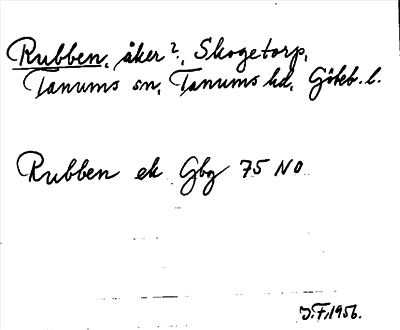 Rubben, åker?, Skogetorp,
Tanums sn, Tanums hd, Göteb. l.
Rubben ek Gbg 75 NO
J.F. 1956.